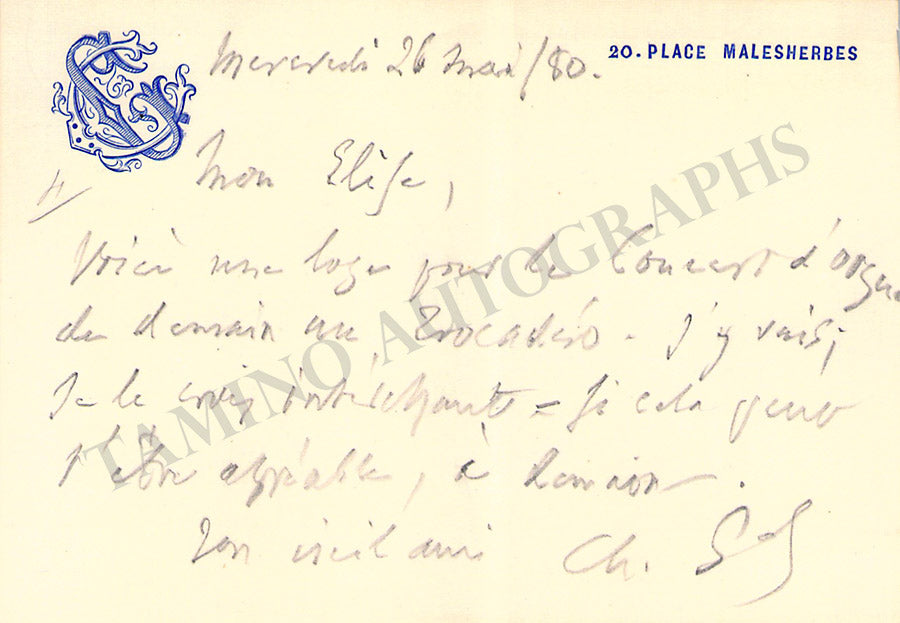 20. PLACE MALESHERBES
Mercredi 26 Mai/80.
Mon Elise,
Voici une loge pour le Concert d'orgue
de demain au Trocadéro - J'y vais;
Je le crois intéressant = Si cela peut
t'être agréable, à demain.
Ton vieil ami Ch. Gd
TAMINO AUTOGRAPHS